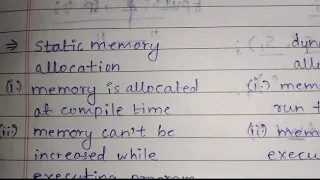 ⇒ static memory
allocation
(i.) memory is allocated
at compile time
(ii) memory can't be
increased while
executing program
dyn
allo
(i.) mem
run t
(ii) mem
execu